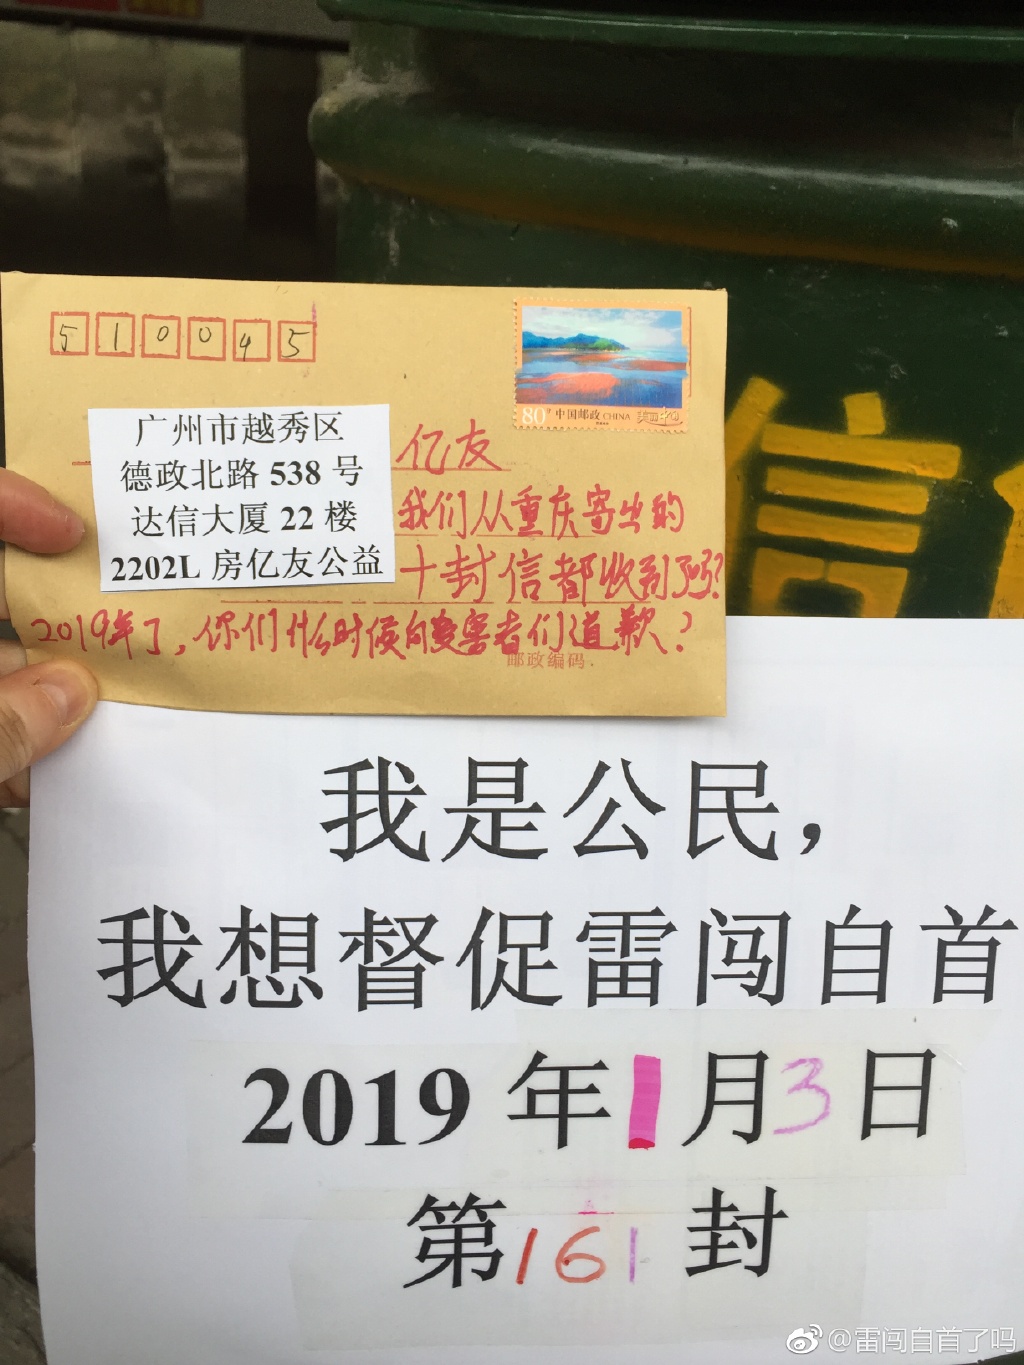 510045
80分 中国邮政 CHINA
广州市越秀区
德政北路 538 号
达信大厦 22 楼
2202L 房亿友公益
亿友
我们从重庆寄出的
十封信都收到了吗?
2019年了,你们什么时候向受害者们道歉?
邮政编码
信
我是公民,
我想督促雷闯自首
2019 年1月3日
第161封
@雷闯自首了吗